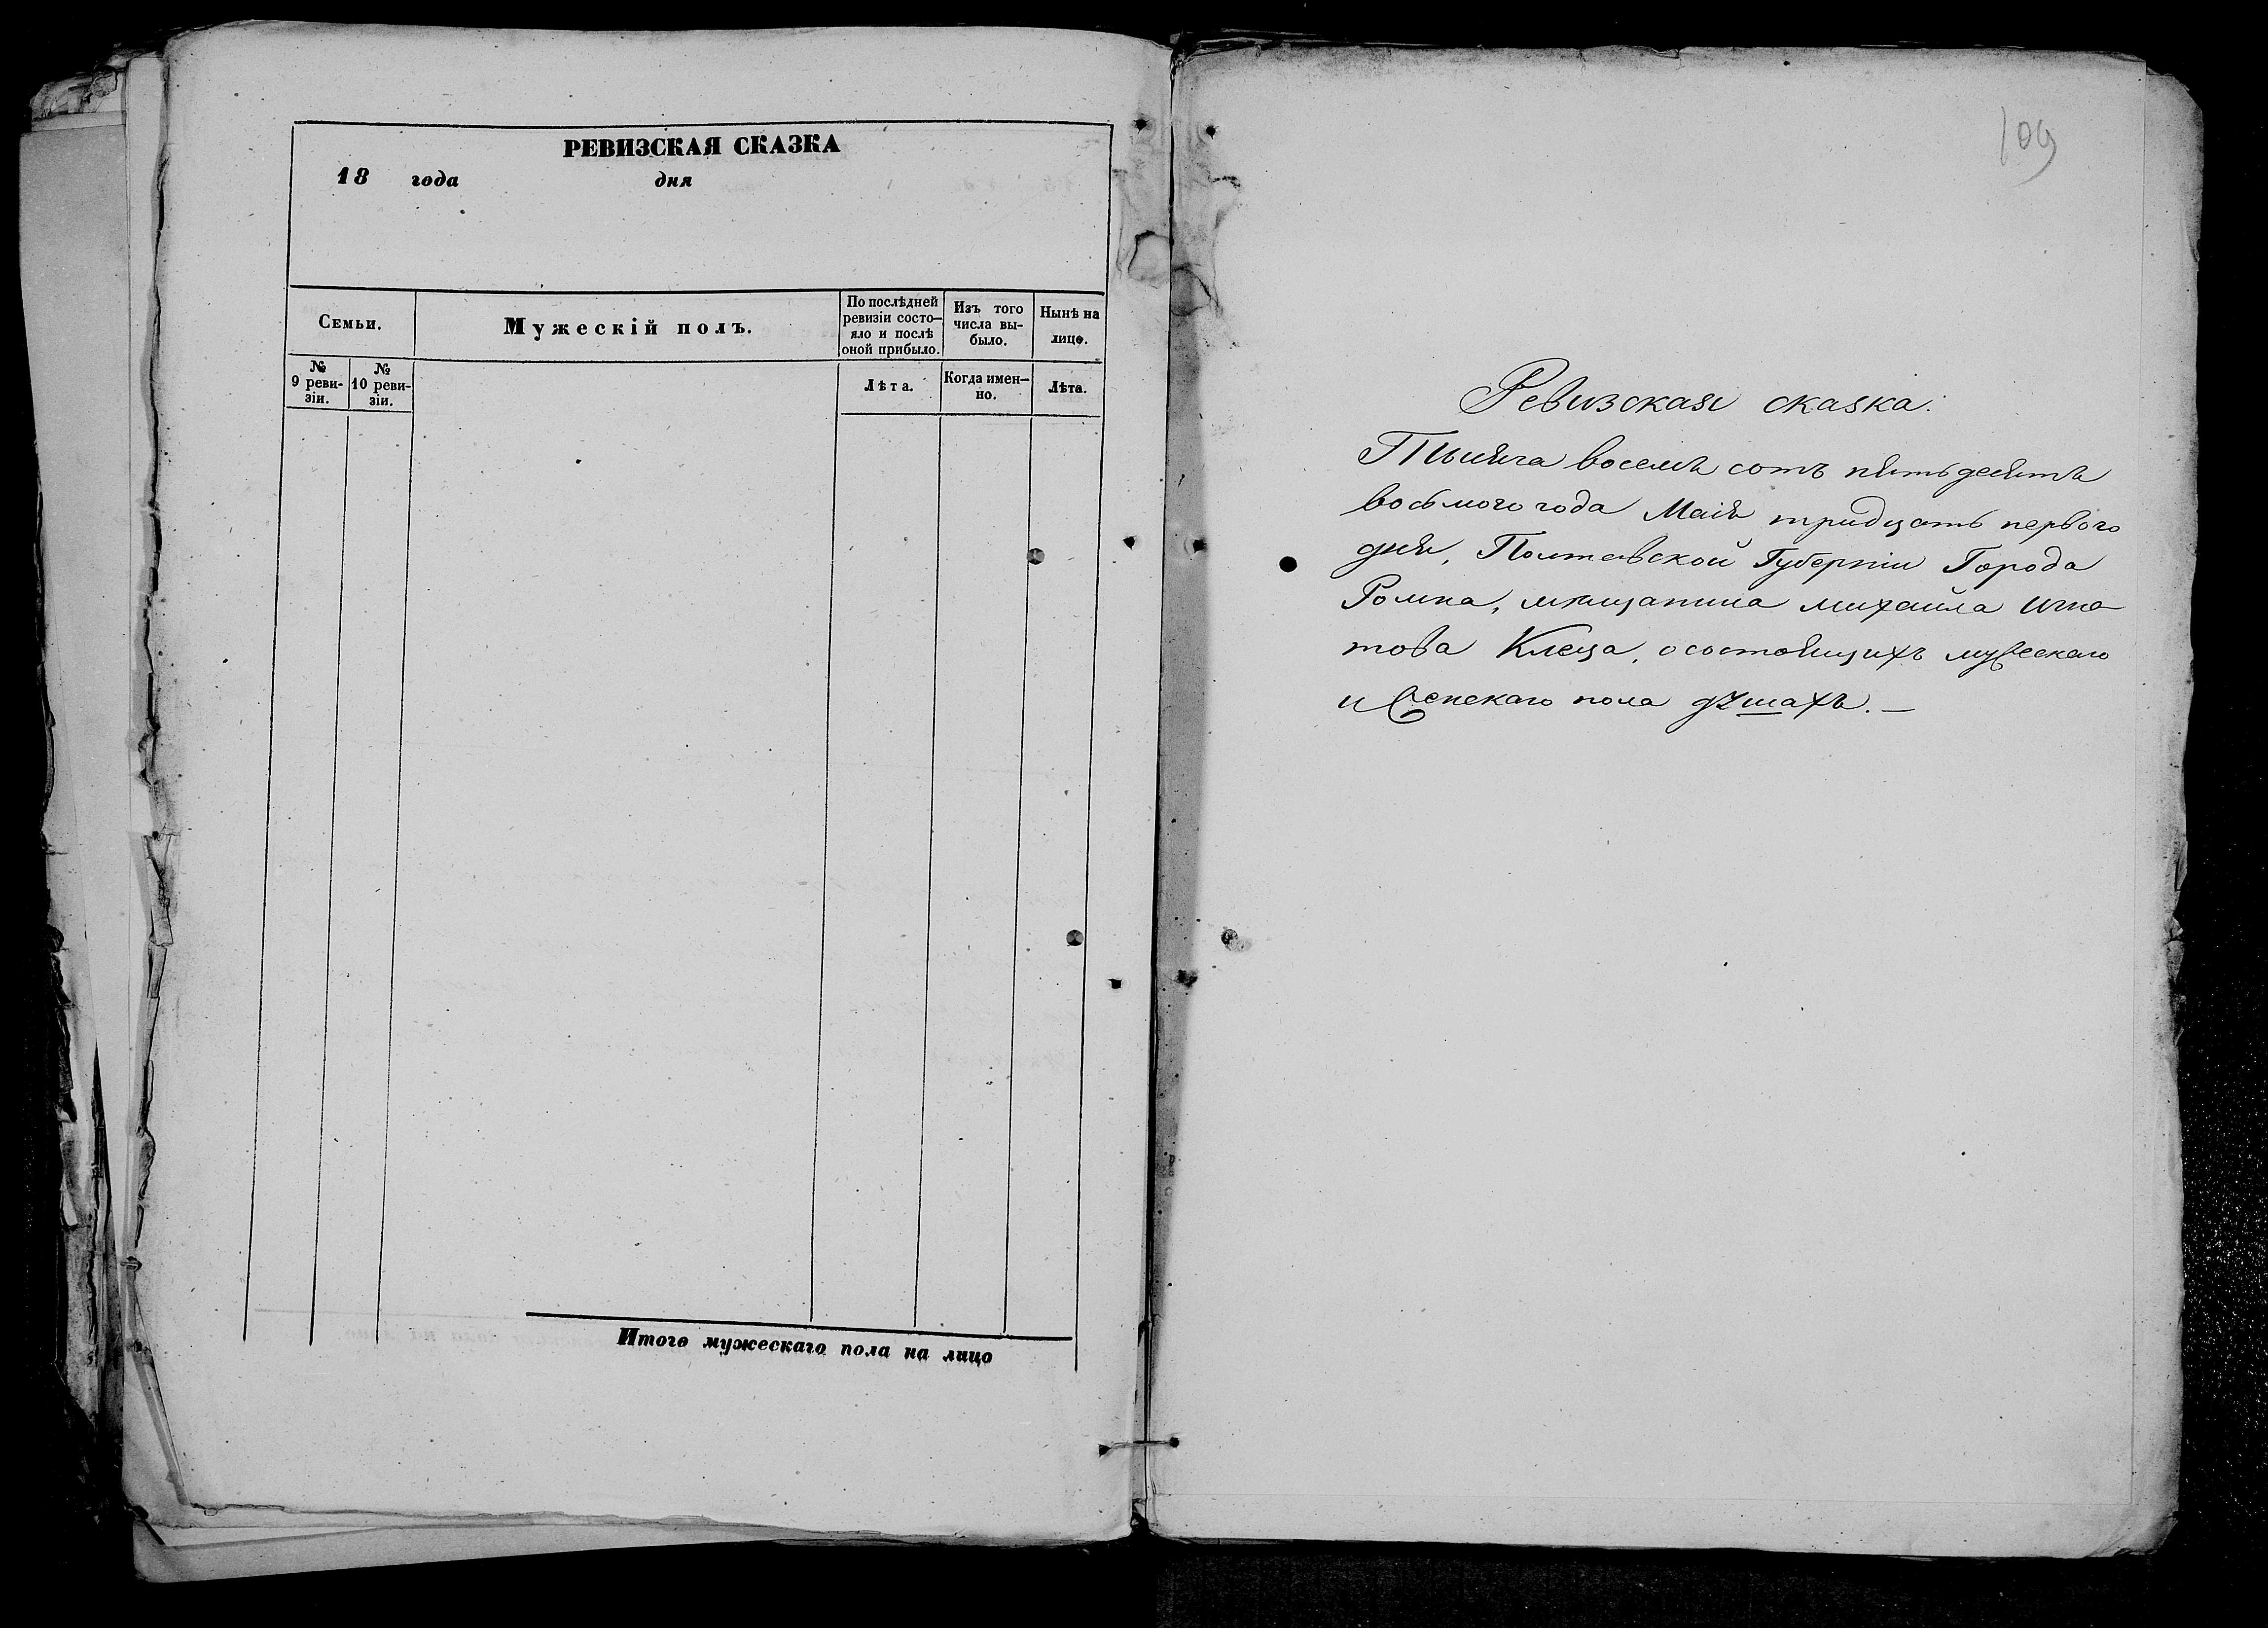 РЕВИЗСКАЯ СКАЗКА
18 года дня
Семьи.
Мужескій полъ.
По послѣдней
ревизіи состо-
яло и послѣ
оной прибыло.
Изъ того
числа вы-
было.
Нынѣ на
лицо.
№
9 реви-
зіи.
№
10 реви-
зіи.
Лѣта.
Когда имен-
но.
Лѣта.
Итого мужескаго пола на лицо
109
Ревизская сказка.
Тысяча восемъ сотъ пятьдесятъ
восьмого года Маія тридцать первого
дня, Полтавской Губерніи Города
Ромна, мѣщанина михайла игна-
това Клеца, о состоящихъ мужескаго
и женскаго пола душахъ.—